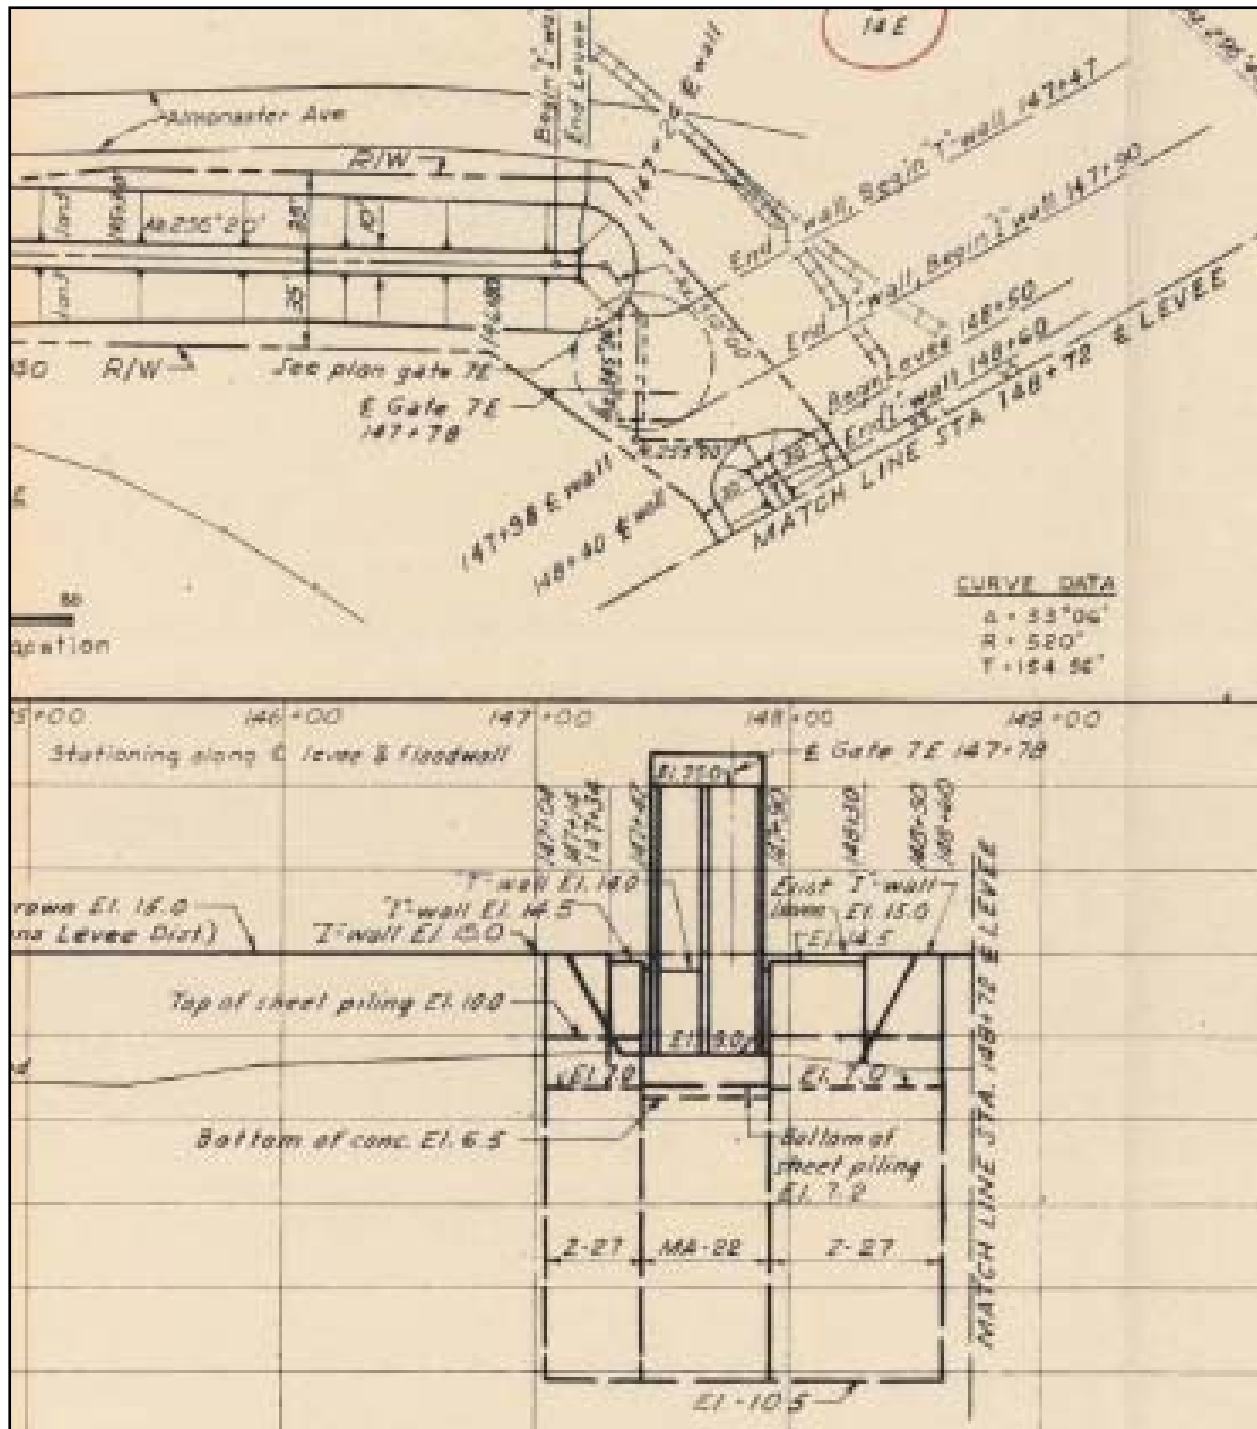 14 E
Begin "I" wa
End Levee
℄ wall
Almonaster Ave
R/W
End "I"-wall, Begin "T"-wall 147+47
End "T"-wall, Begin "I" wall 147+90
Begin Levee 148+50
End "I"-wall 148+60
MATCH LINE STA 148+72 ℄ LEVEE
35'
10'
35'
R/W
See plan gate 7E
℄ Gate 7E
147+78
30'
147+98 ℄ wall
148+40 ℄ wall
CURVE DATA
Δ = 33°06'
R = 520'
T = 154.56'
5+00
146+00
147+00
148+00
149+00
Stationing along ℄ levee & floodwall
℄ Gate 7E 147+78
147+04
147+14
147+34
147+47
147+90
148+30
148+50
148+60
"T"-wall El. 14.0
"I"-wall El. 14.5
"I"-wall El. 15.0
Exist "I"-wall
El. 15.0
El. 14.5
rown El. 15.0
ns Levee Dist)
Top of sheet piling El. 10.0
El. 9.0
El. 7.0
El. 7.0
Bottom of conc. El. 6.5
Bottom of
sheet piling
El. 7.0
Z-27
MA-22
Z-27
El -10.5
MATCH LINE STA. 148+72 ℄ LEVEE